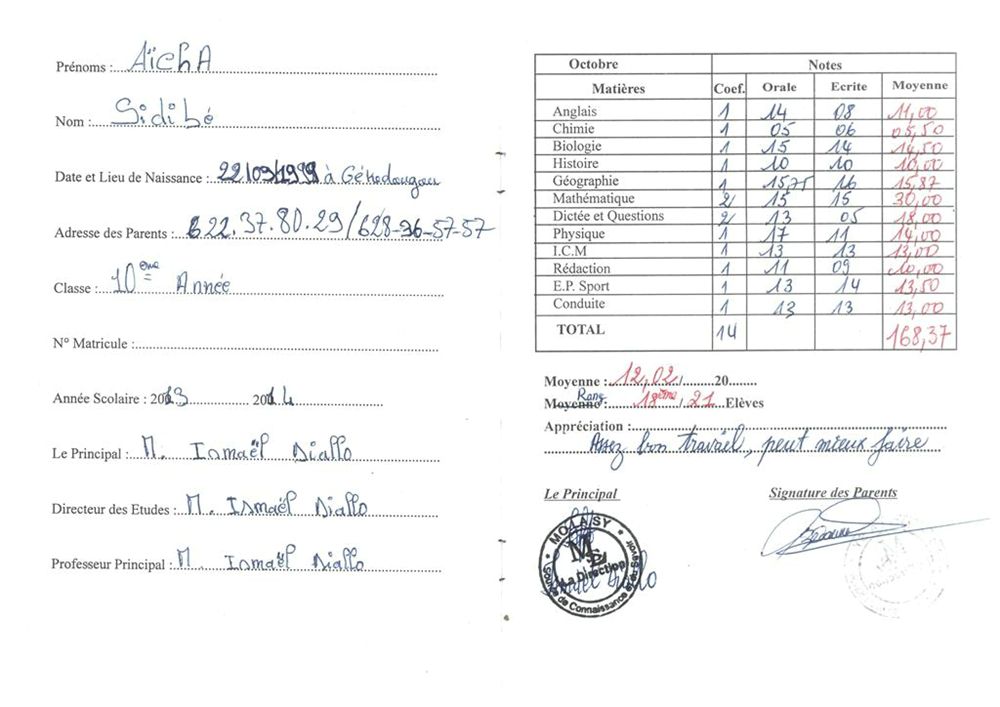 Prénoms : AïchA
Nom : Sidibé
Date et Lieu de Naissance : 22/09/1999 à Gékedougou
Adresse des Parents : 622.37.80.29/628-36-57-57
Classe : 10ème Année
N° Matricule :
Année Scolaire : 2013 2014
Le Principal : M. Ismaël Diallo
Directeur des Etudes : M. Ismaël Diallo
Professeur Principal : M. Ismaël Diallo
Octobre Notes
Matières Coef. Orale Ecrite Moyenne
Anglais 1 14 08 11,00
Chimie 1 05 06 05,50
Biologie 1 15 14 14,50
Histoire 1 10 10 10,00
Géographie 1 15,75 16 15,87
Mathématique 2 15 15 30,00
Dictée et Questions 2 13 05 18,00
Physique 1 17 11 14,00
I.C.M 1 13 13 13,00
Rédaction 1 11 09 10,00
E.P. Sport 1 13 14 13,50
Conduite 1 13 13 13,00
TOTAL 14 168,37
Moyenne : 12,02 / 20
Moyenne : Rang 18ème / 21 Elèves
Appréciation :
Assez bon travail, peut mieux faire
Le Principal Signature des Parents
MOLASY
La Direction
Source de Connaissance et de Savoir